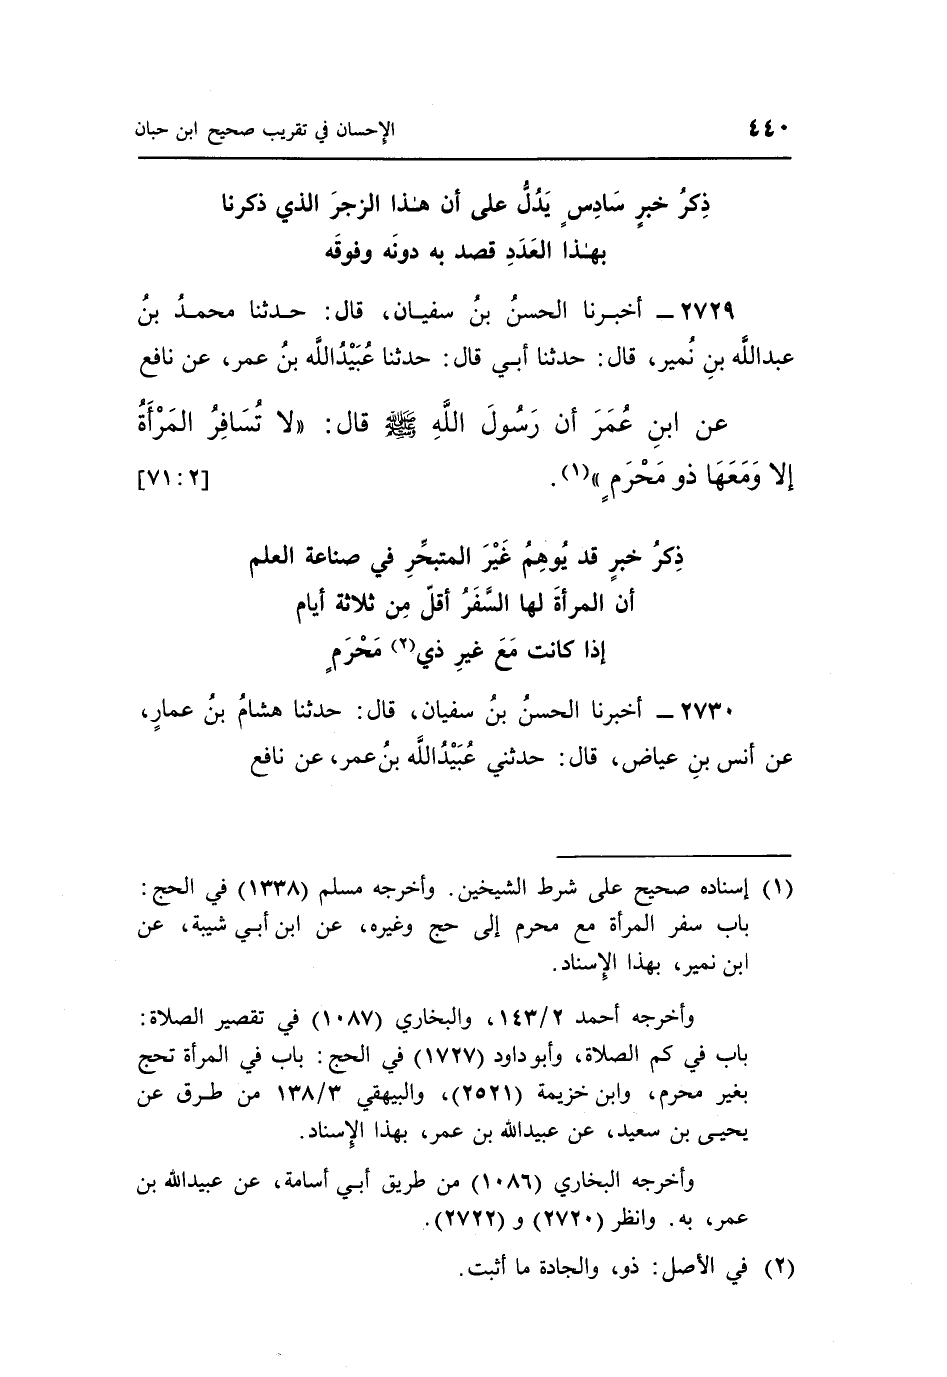 ٤٤٠ الإحسان في تقريب صحيح ابن حبان
ذِكرُ خبرٍ سَادِسٍ يَدُلُّ على أن هٰذا الزجرَ الذي ذكرنا
بهٰذا العَدَدِ قصد به دونَه وفوقَه
٢٧٢٩ ـ أخبرنا الحسنُ بنُ سفيان، قال: حدثنا محمدُ بنُ
عبداللَّه بنِ نُمير، قال: حدثنا أبي قال: حدثنا عُبَيْدُاللَّه بنُ عمر، عن نافع
عن ابنِ عُمَرَ أن رَسُولَ اللَّهِ ﷺ قال: «لا تُسَافِرُ المَرْأَةُ
إلا وَمَعَهَا ذو مَحْرَمٍ»(١). [٢: ٧١]
ذِكرُ خبرٍ قد يُوهِمُ غَيْرَ المتبحِّرِ في صناعة العلم
أن المرأةَ لها السَّفَرُ أقلّ مِن ثلاثة أيام
إذا كانت مَعَ غيرِ ذي(٢) مَحْرَمٍ
٢٧٣٠ ـ أخبرنا الحسنُ بنُ سفيان، قال: حدثنا هشامُ بنُ عمارٍ،
عن أنس بنِ عياض، قال: حدثني عُبَيْدُاللَّه بنُ عمر، عن نافع
(١) إسناده صحيح على شرط الشيخين. وأخرجه مسلم (١٣٣٨) في الحج:
باب سفر المرأة مع محرم إلى حج وغيره، عن ابن أبي شيبة، عن
ابن نمير، بهذا الإسناد.
وأخرجه أحمد ١٤٣/٢، والبخاري (١٠٨٧) في تقصير الصلاة:
باب في كم الصلاة، وأبو داود (١٧٢٧) في الحج: باب في المرأة تحج
بغير محرم، وابن خزيمة (٢٥٢١)، والبيهقي ١٣٨/٣ من طرق عن
يحيى بن سعيد، عن عبيدالله بن عمر، بهذا الإسناد.
وأخرجه البخاري (١٠٨٦) من طريق أبي أسامة، عن عبيدالله بن
عمر، به. وانظر (٢٧٢٠) و (٢٧٢٢).
(٢) في الأصل: ذو، والجادة ما أثبت.